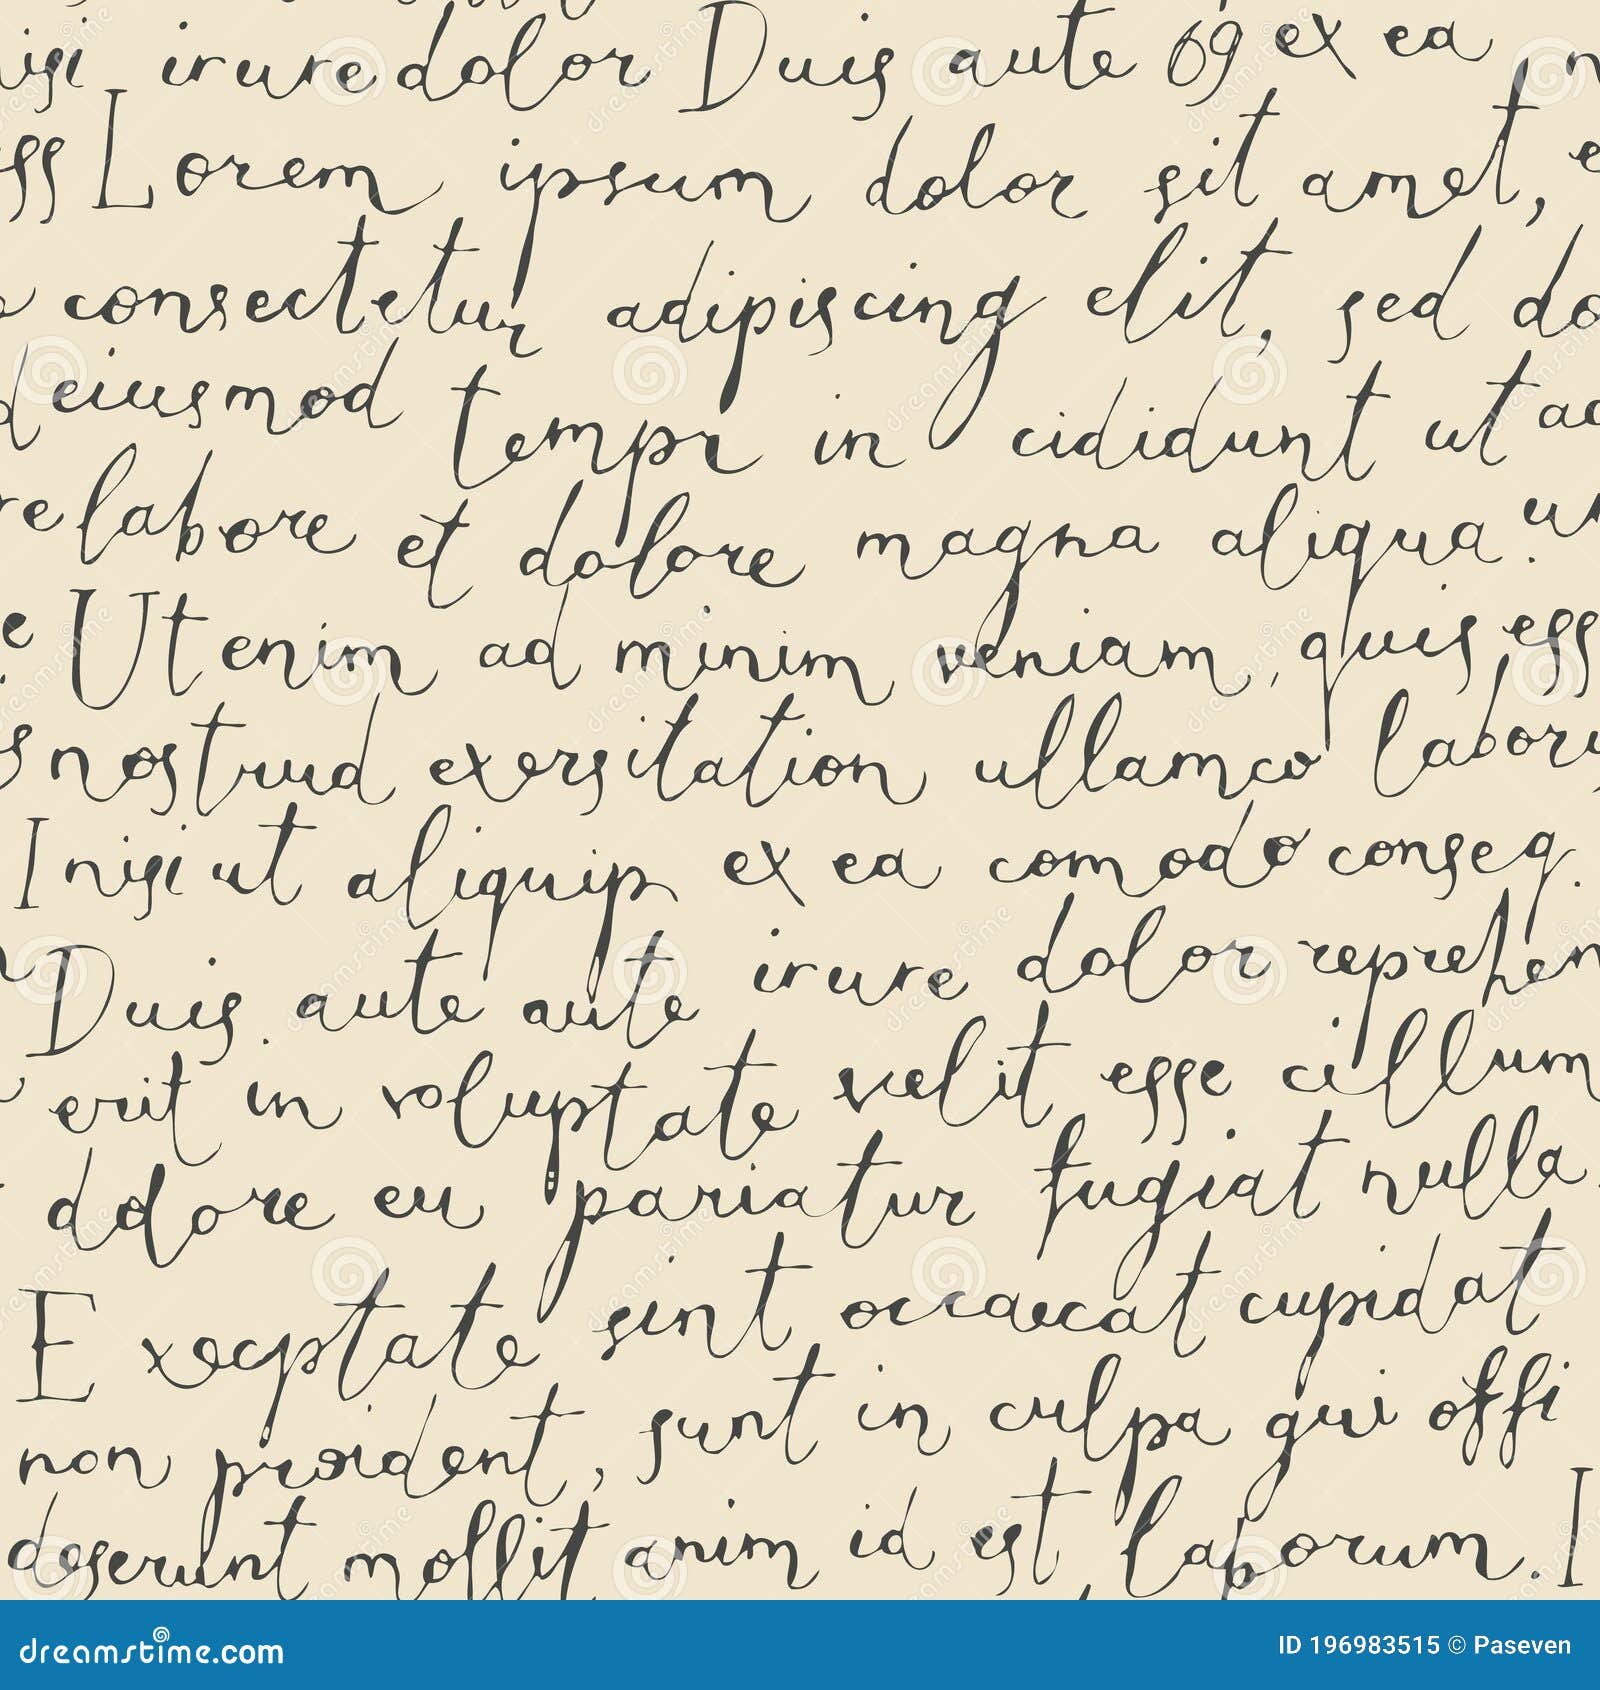 nisi irure dolor Duis aute 69 ex ea
ess Lorem ipsum dolor sit amet, e
consectetur adipiscing elit, sed do
d eiusmod tempr in cididunt ut ad
re labore et dolore magna aliqua. un
e Ut enim ad minim veniam, quis ess
s nostrud exersitation ullamco labory
I nisi ut aliquip ex ea comodo conseq.
Duis. aute aute irure dolor reprehen
erit in voluptate velit esse cillum
dolore eu pariatur fugiat nulla
Execptate sint occaecat cupidat
non proident, sunt in culpa qui offi
deserunt mollit anim id est, laborum. I
dreamstime.com ID 196983515 © Paseven